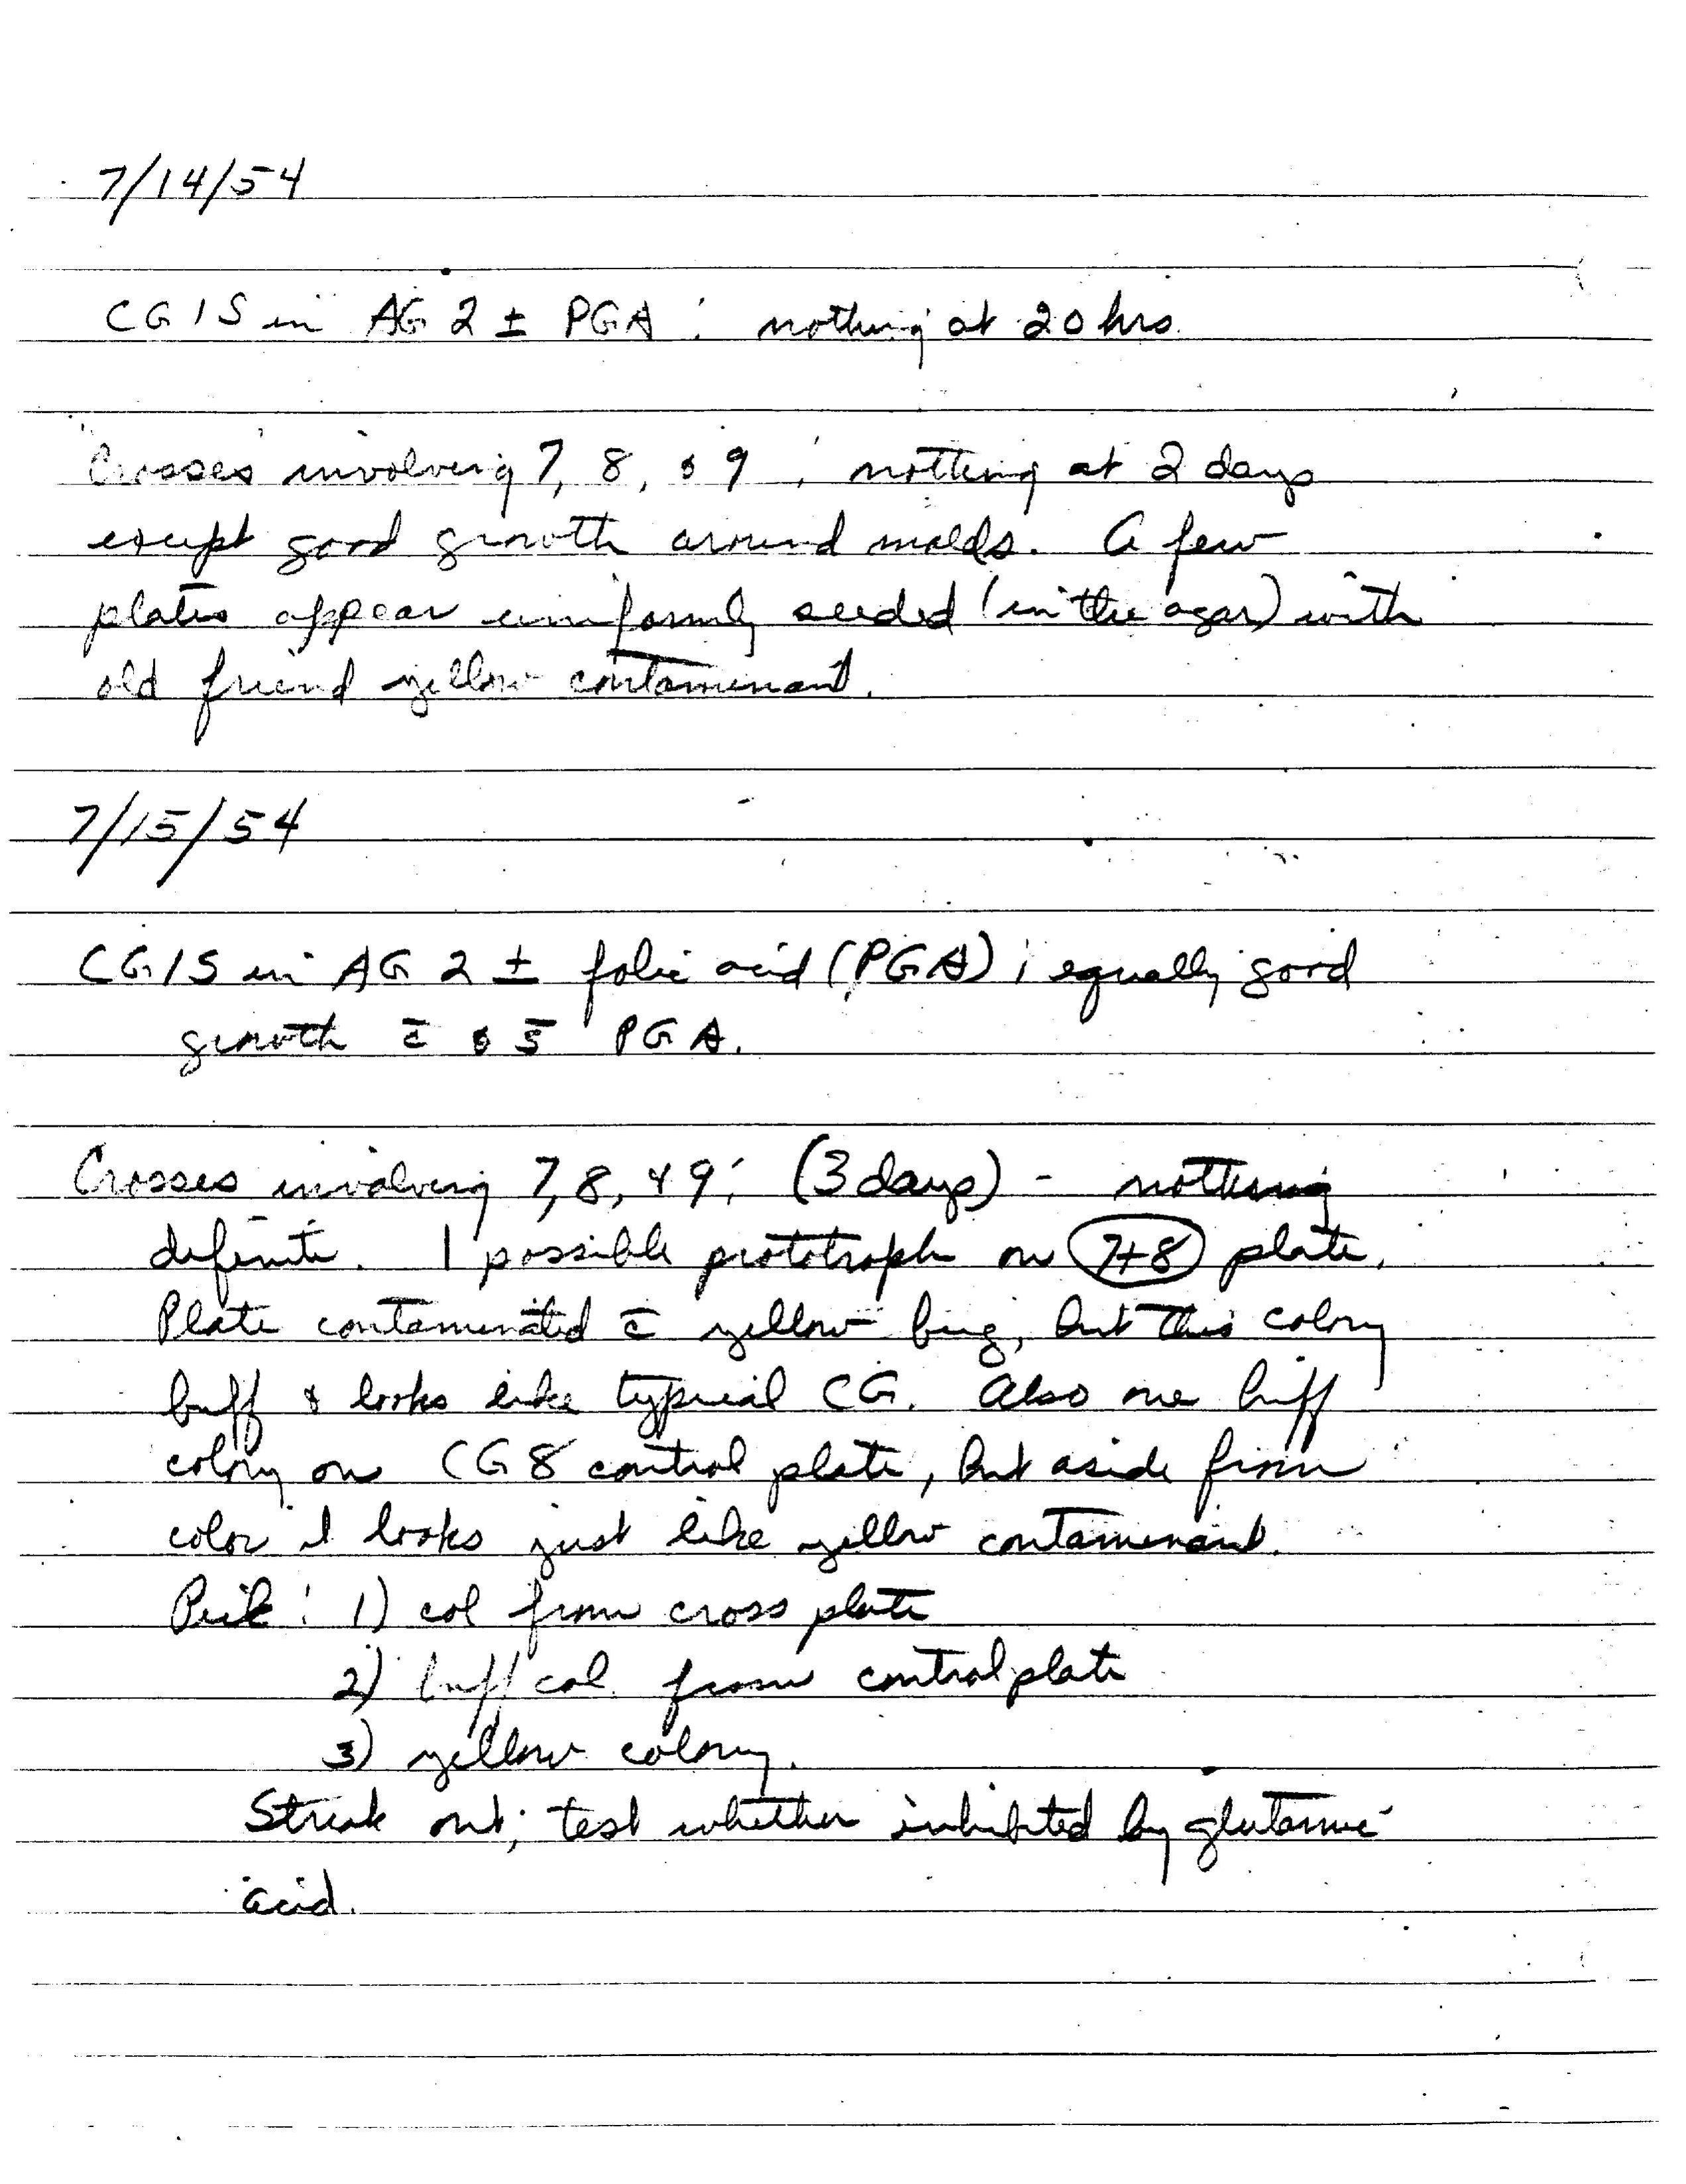 7/14/54
CG1S in AG 2 ± PGA : nothing at 20 hrs.
Crosses involving 7, 8, & 9 : nothing at 2 days
except good growth around molds. A few
plates appear uniformly seeded (in the agar) with
old friend yellow contaminant.
7/15/54
CG1S in AG 2 ± folic acid (PGA) : equally good
growth c̄ & s̄ PGA.
Crosses involving 7, 8, & 9 : (3 days) - nothing
definite. 1 possible prototroph on 7+8 plate.
Plate contaminated c̄ yellow bug, but this colony
buff & looks like typical CG. Also one buff
colony on CG8 control plate, but aside from
color it looks just like yellow contaminant.
Pick : 1) col from cross plate
2) buff col. from control plate
3) yellow colony.
Streak out; test whether inhibited by glutamic
acid.